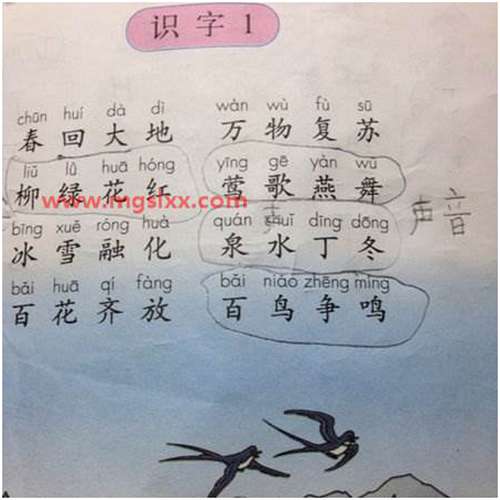 识字1
chūn huí dà dì wàn wù fù sū
春回大地 万物复苏
liǔ lǜ huā hóng yīng gē yàn wǔ
柳绿花红 莺歌燕舞
www.mgslxx.com
bīng xuě róng huà quán shuǐ dīng dōng
冰雪融化 泉水丁冬 声音
bǎi huā qí fàng bǎi niǎo zhēng míng
百花齐放 百鸟争鸣